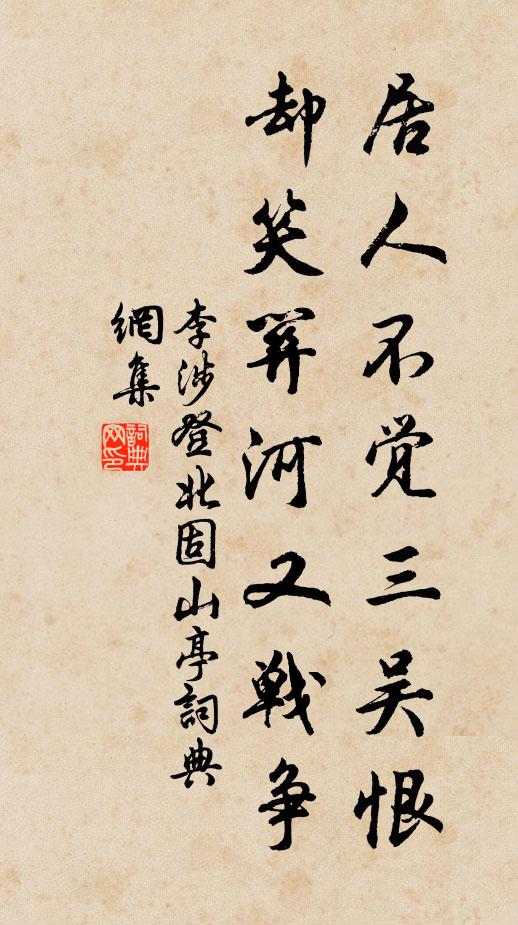 居人不觉三吴恨
却笑关河又战争
李涉登北固山亭詞典
網集
詞典
网印